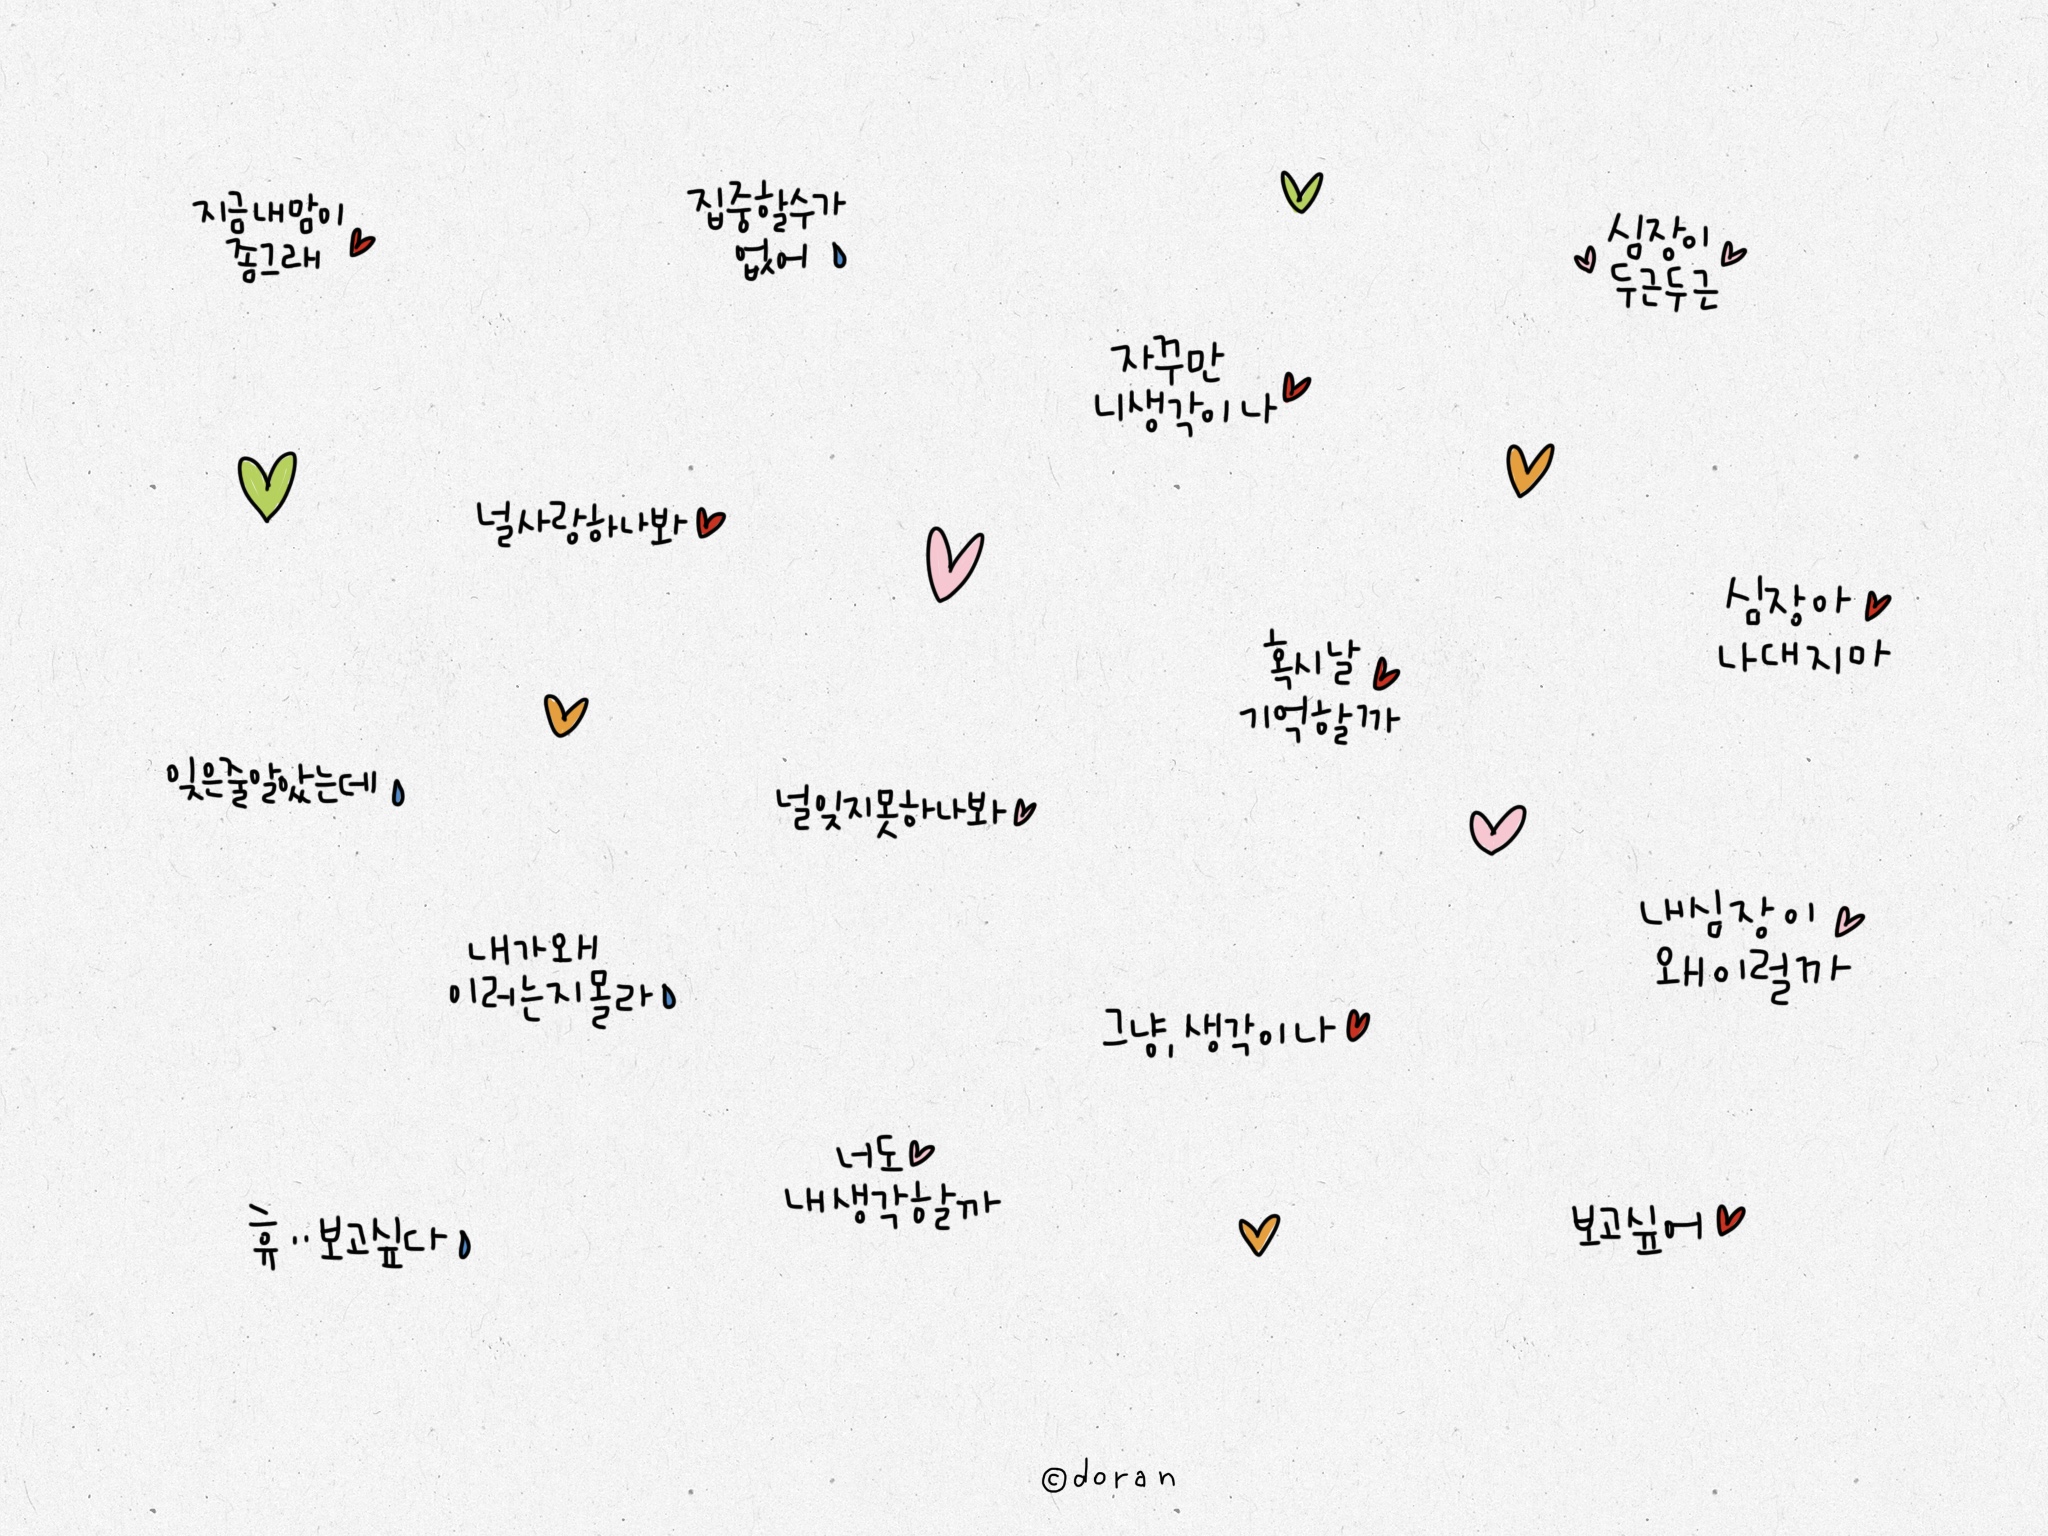 지금내맘이
좀그래
집중할수가
없어
심장이
두근두근
자꾸만
니생각이나
널사랑하나봐
심장아
나대지마
혹시날
기억할까
잊은줄알았는데
널잊지못하나봐
내심장이
왜이럴까
내가왜
이러는지몰라
그냥, 생각이나
너도
내생각할까
휴..보고싶다
보고싶어
©doran